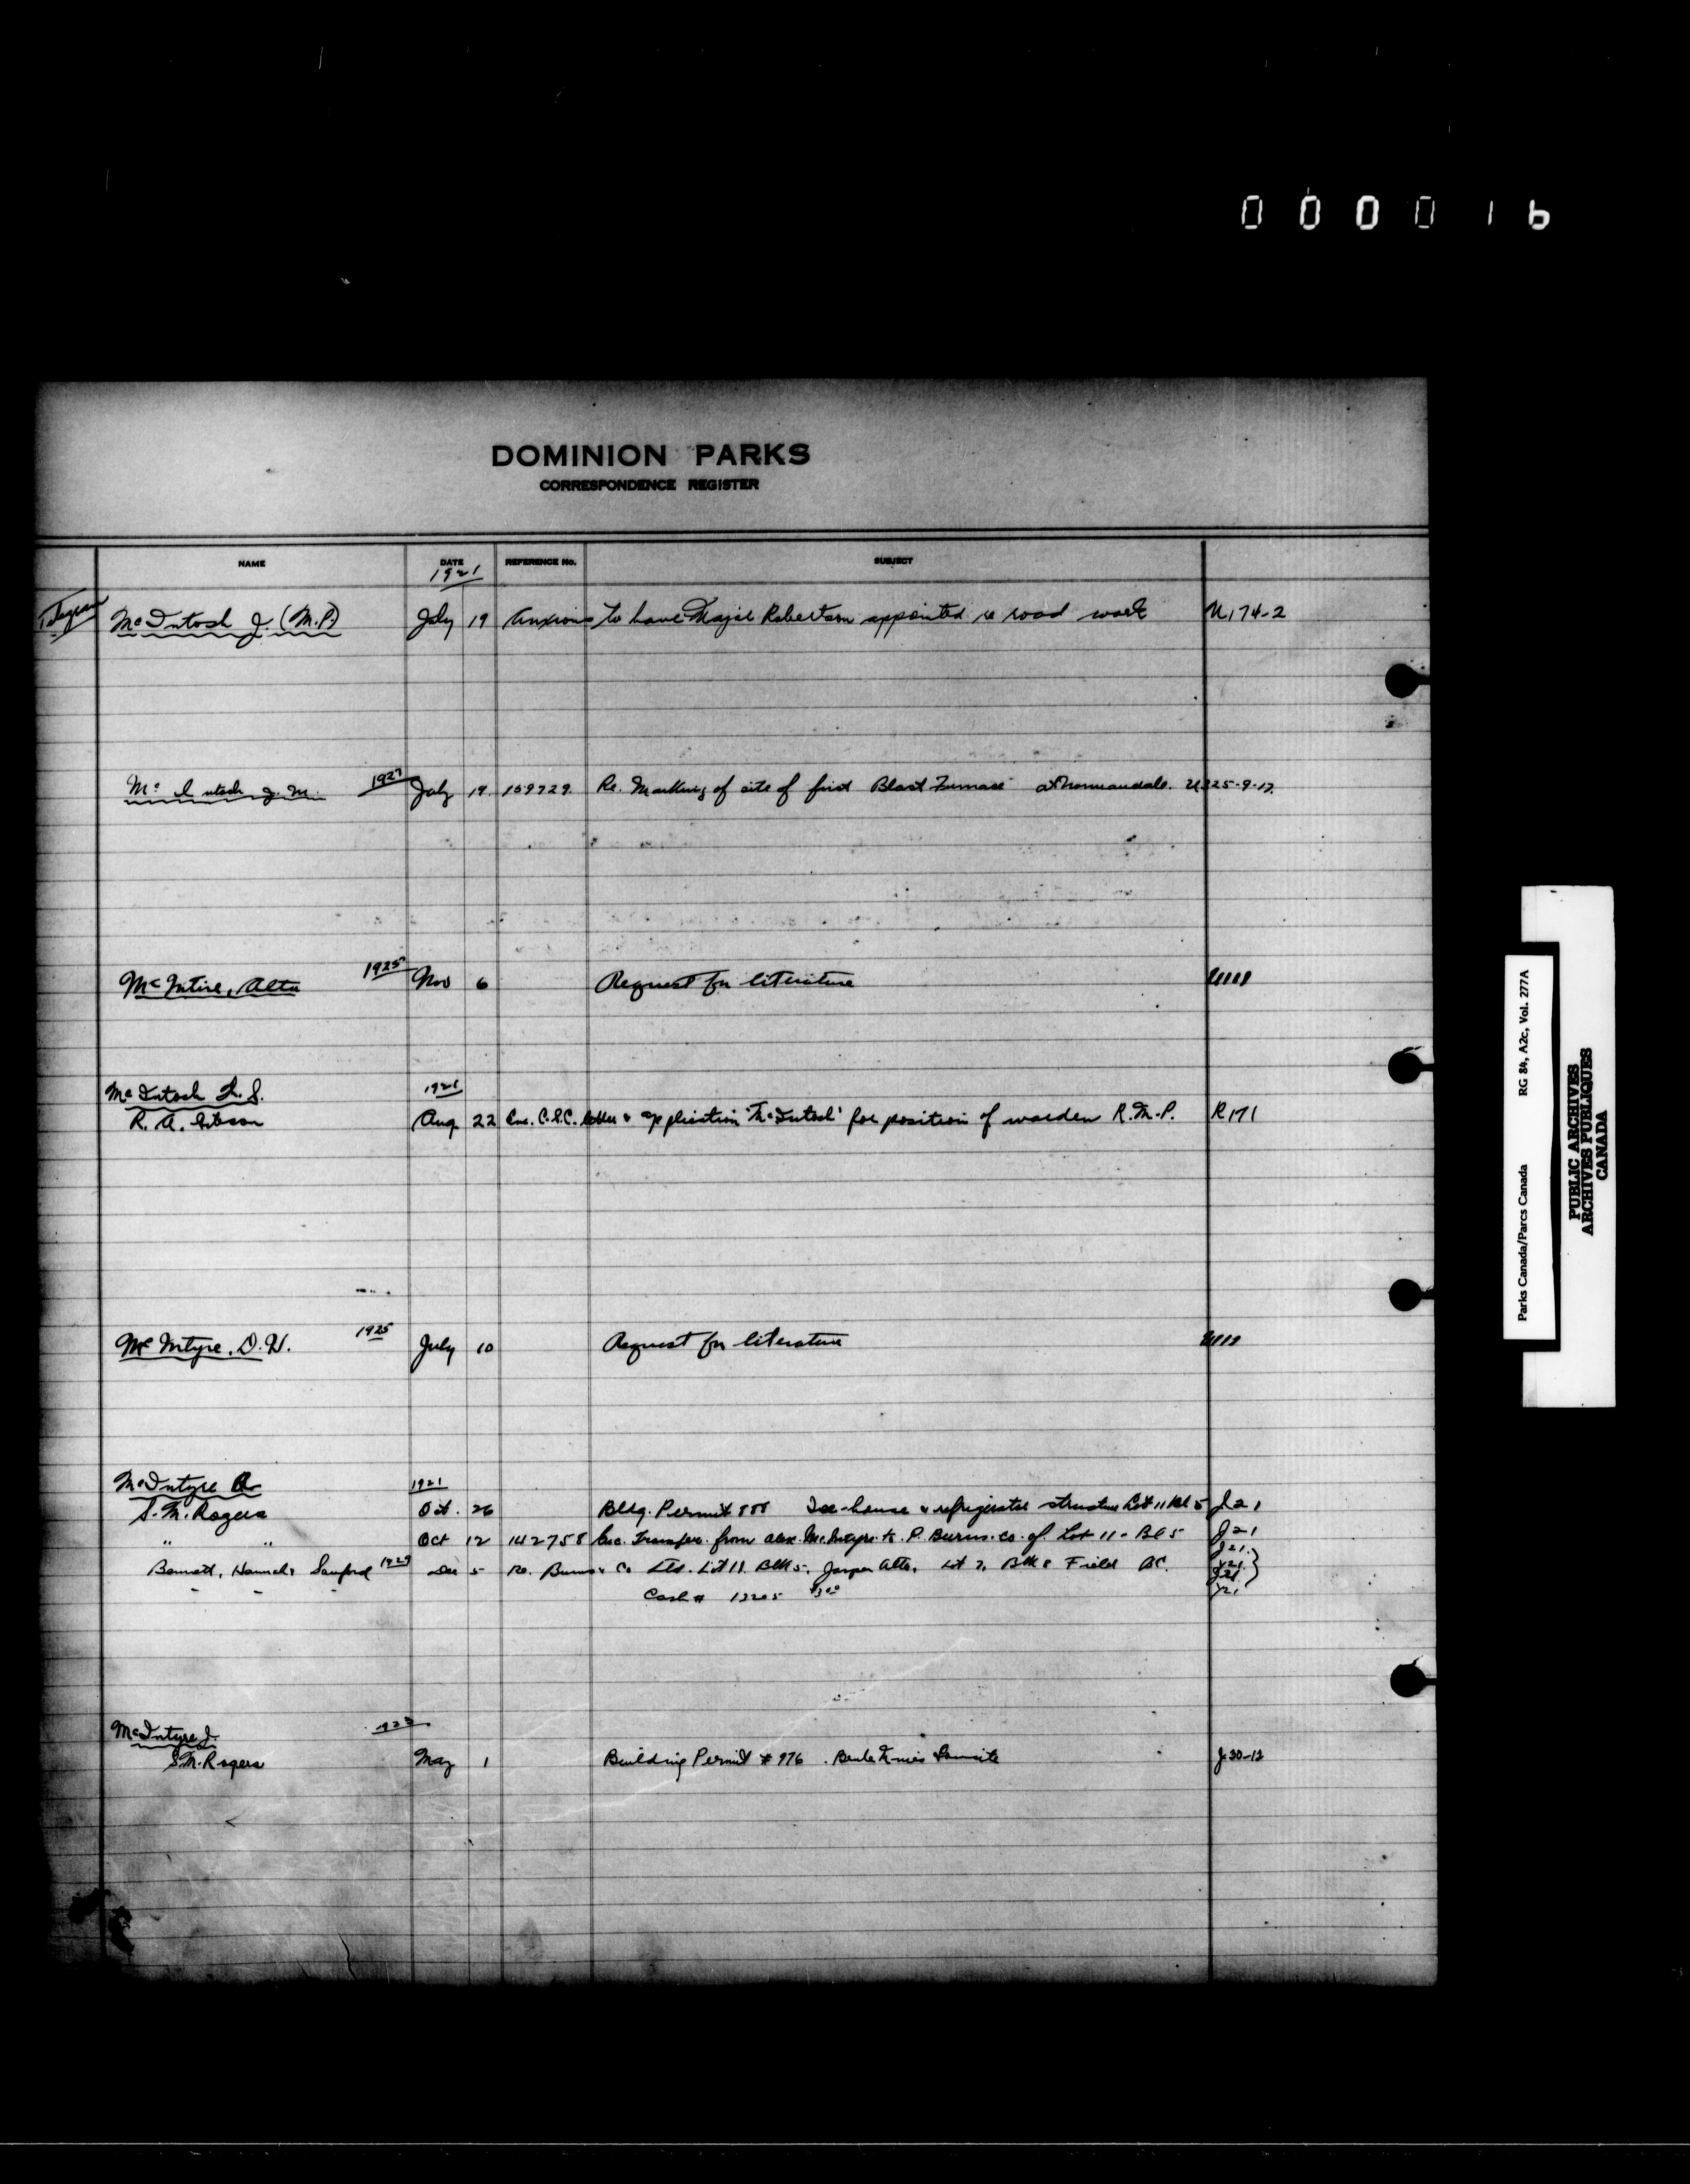 000016
DOMINION PARKS
CORRESPONDENCE REGISTER
NAME DATE REFERENCE No. SUBJECT
1921
McIntosh J. (M.P.) July 19 Anxious to have Major Robertson appointed re road work U174-2
McIntosh J. M. 1927 July 19. 109729 Re. Marking of site of first Blast Furnace at Normandale. U325-9-17.
McIntire, Alta 1925 Nov 6 Request for literature U111
McIntosh L. S. 1921
R. A. Gibson Aug 22 Enc. C.S.C. letter & application "McIntosh" for position of warden R.M.P. R171
McIntyre, D. H. 1925 July 10 Request for literature U111
McIntyre A 1921
S. M. Rogers Oct. 26 Bldg. Permit 888 Ice-house & refrigerator structure Lot 11 Bl 5 J21
" " Oct 12 142758 Enc. Transfer from Alex McIntyre to P. Burns. Co. of Lot 11 - Bl 5 J21
J21.
Bennett, Hannah & Sanford 1929 Dec 5 Re. Burns & Co Ltd. Lot 11. Blk 5, Jasper Alta, Lot 7, Blk 8 Field BC. Y21
J21
Cash # 13205 $3.00 Y21
McIntyre J. 1923
S. M. Rogers May 1 Building Permit # 976 . J30-12
Parks Canada/Parcs Canada RG 84, A2c, Vol. 277A
PUBLIC ARCHIVES
ARCHIVES PUBLIQUES
CANADA